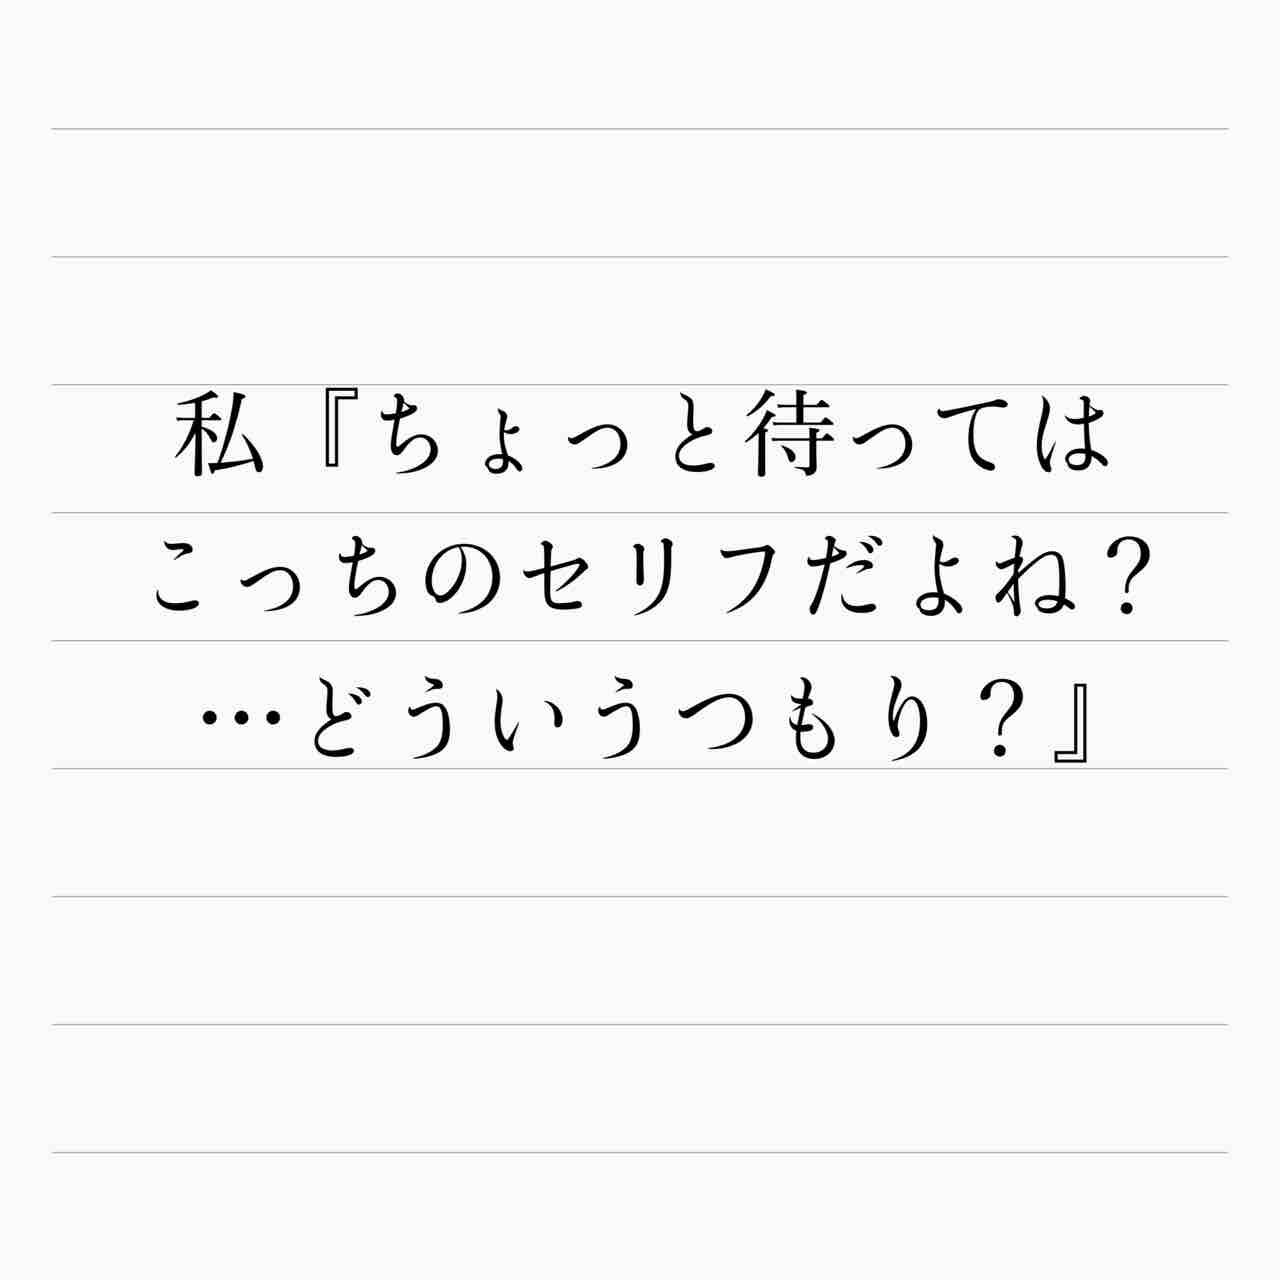 私『ちょっと待っては
こっちのセリフだよね？
…どういうつもり？』